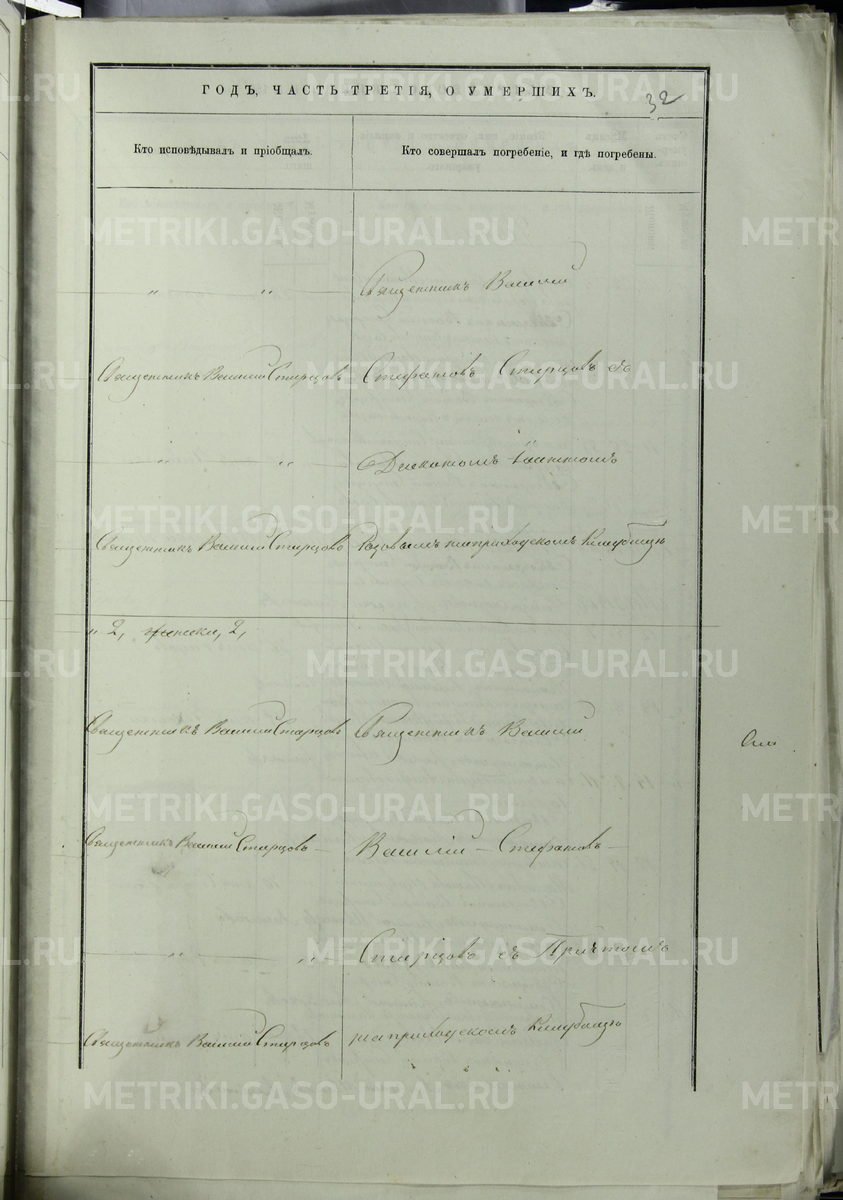 ГОДЪ, ЧАСТЬ ТРЕТІЯ, О УМЕРШИХЪ.
32
Кто исповѣдывалъ и пріобщалъ.
Кто совершалъ погребеніе, и гдѣ погребены.
METRIKI.GASO-URAL.RU
„ „
Священникъ Василій
Священникъ Василій Старцовъ
Стефановъ Старцовъ съ
„ „
Діакономъ
Священникъ Василій Старцовъ
на приходскомъ Кладбищѣ
„ 2, 2,
Священникъ Василій Старцовъ
Священникъ Василій
Священникъ Василій Старцовъ
Василій Стефановъ
„ „
Старцовъ съ Причтомъ
Священникъ Василій Старцовъ
на приходскомъ Кладбищѣ